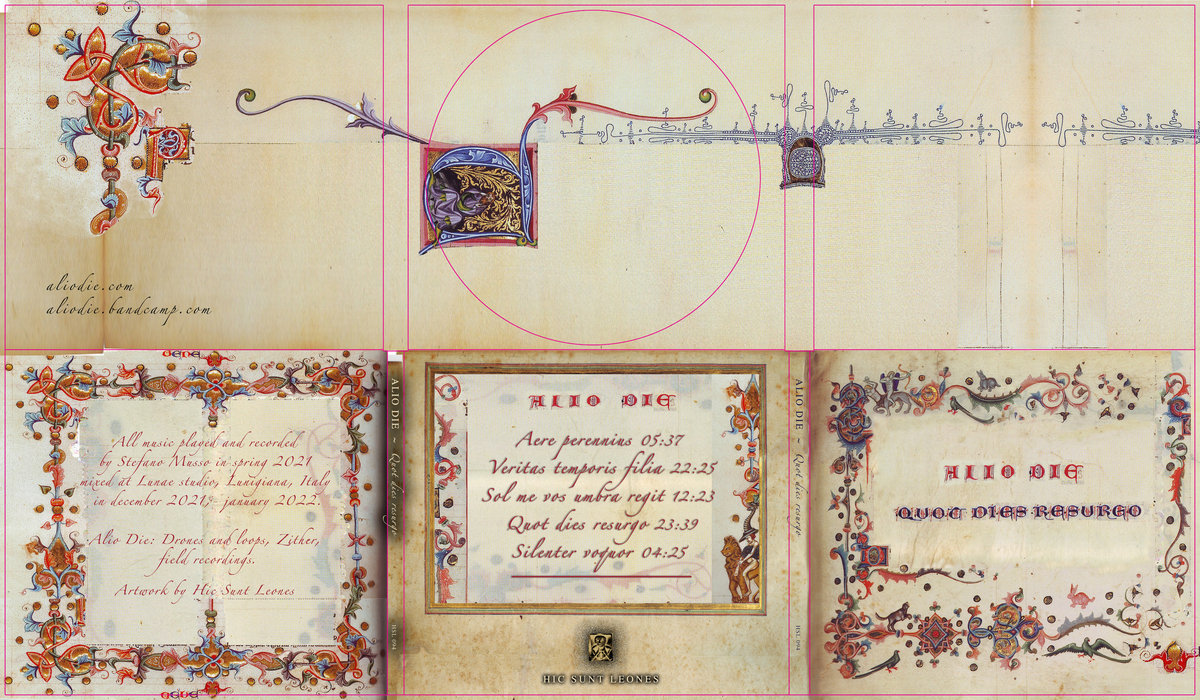 aliodie.com
aliodie.bandcamp.com
All music played and recorded
by Stefano Musso in spring 2021
mixed at Lunae studio, Lunigiana, Italy
in december 2021, - january 2022.
Alio Die: Drones and loops, Zither,
field recordings.
Artwork by Hic Sunt Leones
ALIO DIE ~ Quot dies resurgo
HSL 094
ALIO DIE
Aere perennius 05:37
Veritas temporis filia 22:25
Sol me vos umbra regit 12:23
Quot dies resurgo 23:39
Silenter voquor 04:25
HIC SUNT LEONES
ALIO DIE ~ Quot dies resurgo
HSL 094
ALIO DIE
QUOT DIES RESURGO